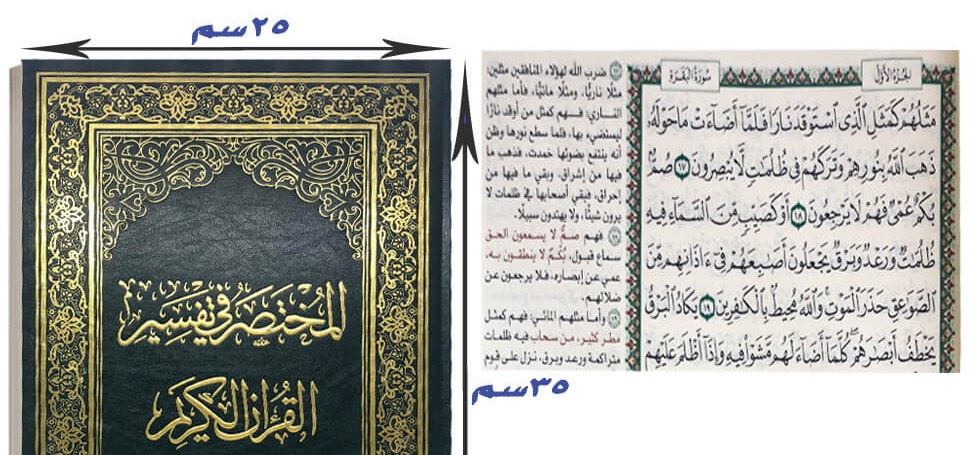 ٢٥سم
المختصر في تفسير
القرآن الكريم
٣٥سم
الجزء الأول
سورة البقرة
مَثَلُهُمْ كَمَثَلِ ٱلَّذِى ٱسْتَوْقَدَ نَارًا فَلَمَّآ أَضَآءَتْ مَا حَوْلَهُۥ
ذَهَبَ ٱللَّهُ بِنُورِهِمْ وَتَرَكَهُمْ فِى ظُلُمَٰتٍ لَّا يُبْصِرُونَ ١٧ صُمٌّۢ
بُكْمٌ عُمْىٌ فَهُمْ لَا يَرْجِعُونَ ١٨ أَوْ كَصَيِّبٍ مِّنَ ٱلسَّمَآءِ فِيهِ
ظُلُمَٰتٌ وَرَعْدٌ وَبَرْقٌ يَجْعَلُونَ أَصَٰبِعَهُمْ فِىٓ ءَاذَانِهِم مِّنَ
ٱلصَّوَٰعِقِ حَذَرَ ٱلْمَوْتِ وَٱللَّهُ مُحِيطٌۢ بِٱلْكَٰفِرِينَ ١٩ يَكَادُ ٱلْبَرْقُ
يَخْطَفُ أَبْصَٰرَهُمْ كُلَّمَآ أَضَآءَ لَهُم مَّشَوْا۟ فِيهِ وَإِذَآ أَظْلَمَ عَلَيْهِمْ
١٧ ضرب الله لهؤلاء المنافقين مثلين:
مثلًا ناريًّا، ومثلًا مائيًّا، فأما مثلهم
الناري: فهم كمثل من أوقد نارًا
ليستضيء بها، فلما سطع نورها وظن
أنه ينتفع بضوئها خمدت، فذهب ما
فيها من إشراق، وبقي ما فيها من
إحراق، فبقي أصحابها في ظلمات لا
يرون شيئًا، ولا يهتدون سبيلًا.
١٨ فهم صمٌّ لا يسمعون الحق
سماع قبول، بُكْمٌ لا ينطقون به،
عمي عن إبصاره، فلا يرجعون عن
ضلالهم.
١٩ وأما مثلهم المائي: فهم كمثل
مطر كثير، من سحاب فيه ظلمات
متراكمة ورعد وبرق، نزل على قوم